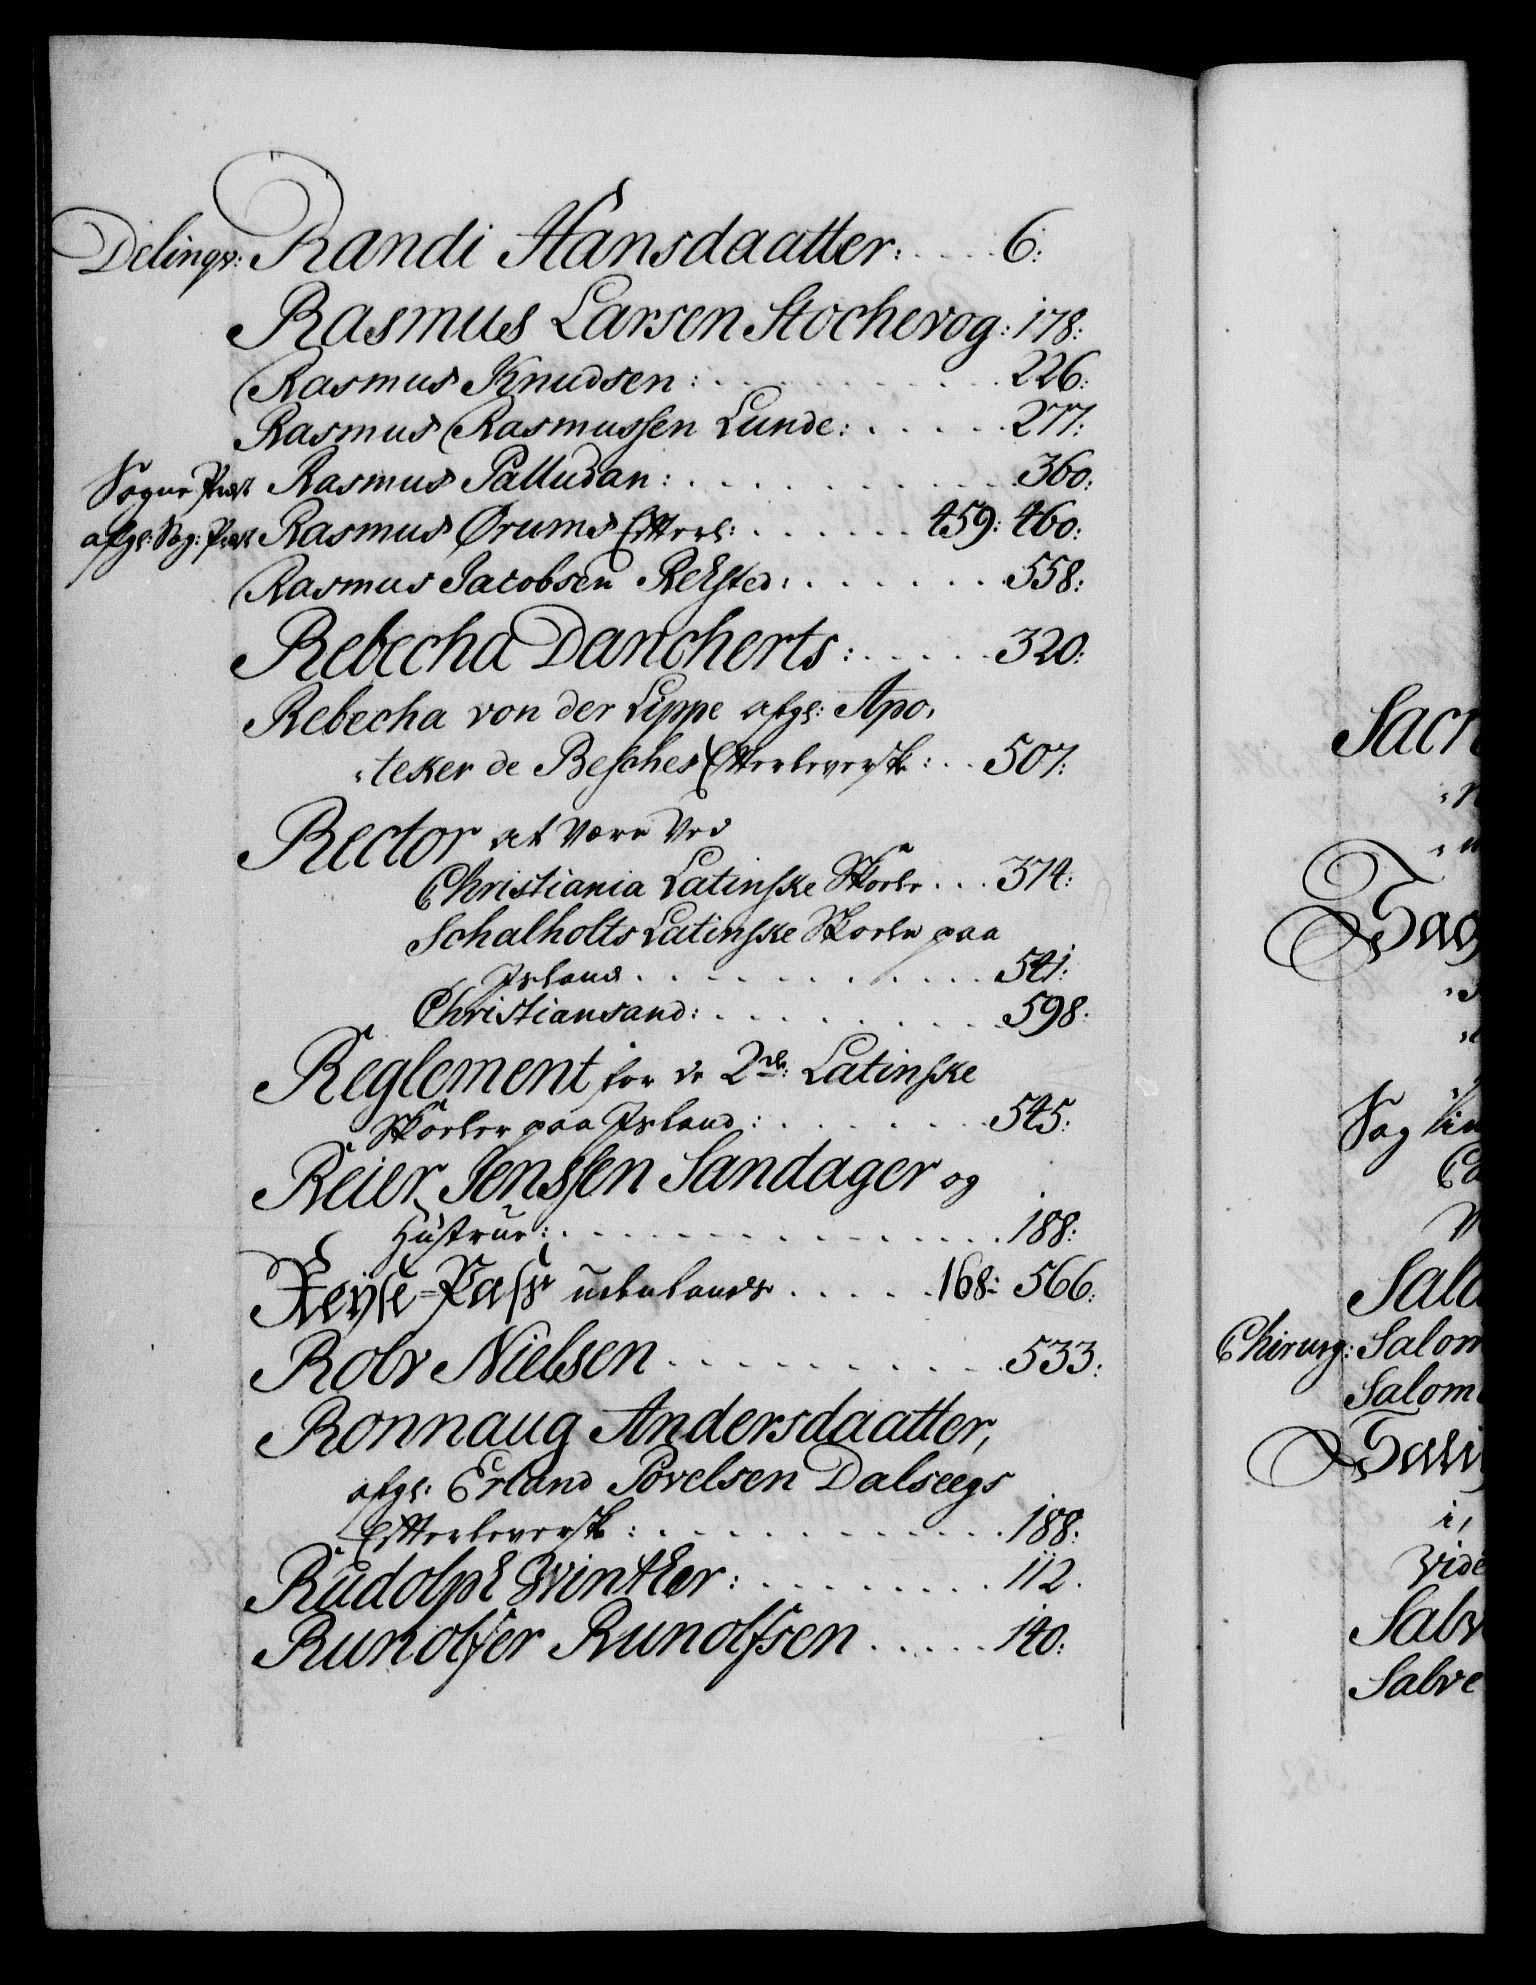 Delinqv: Randi Hansdaatter: . . . . 6:
Rasmus Larsen Stochevog: 178:
Rasmus Knudsen: . . . . . . . . . . 226:
Rasmus Rasmussen Lunde: . . . . . 277:
Sogne Præst Rasmus Palludan: . . . . . . . . . . 360:
afgl: Sog: Præst Rasmus Ørums Efterl: . . . . . . . 459: 460:
Rasmus Jacobsen Relsted: . . . . . . . 558:
Rebecha Dancherts: . . . . . 320:
Rebecha von der Lippe afgl: Apo,
,teker de Besches Efterleversk: . . 507:
Rector at være ved
Christiania Latinske Skoele . . . 374:
Schalholts Latinske Skoele paa
Island . . . . . . . . . . . 541:
Christiansand: . . . . . . . . . 598:
Reglement for de 2de: Latinske
Skoeler paa Island: . . . . . . . . 545:
Reier Jenssen Sandager og
Hustrue: . . . . . . . . . . . . . . . 188:
Reyse=Pass udenlands . . . . . 168: 566:
Rolv Nielsen . . . . . . . . . . . 533:
Ronnaug Andersdaatter,
afgl: Erland Povelsen Dalseegs
Efterleversk: . . . . . . . . . . . . 188:
Rudolph Winther: . . . . . . . . . 112.
Runolfer Runolfsen . . . . . 140:
Sacr
Sag
Sag
Chirurg: Salom
Salom
i,
vide
Salv
Salve